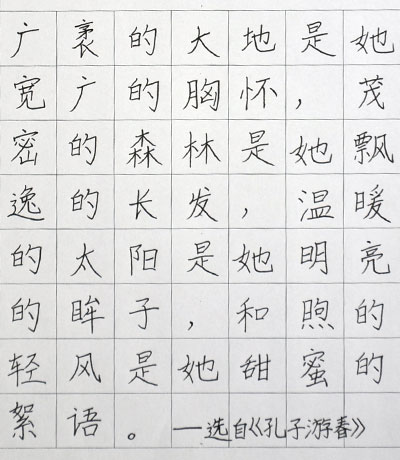 广袤的大地是她
宽广的胸怀，茂
密的森林是她飘
逸的长发，温暖
的太阳是她明亮
的眸子，和煦的
轻风是她甜蜜的
絮语。——选自《孔子游春》